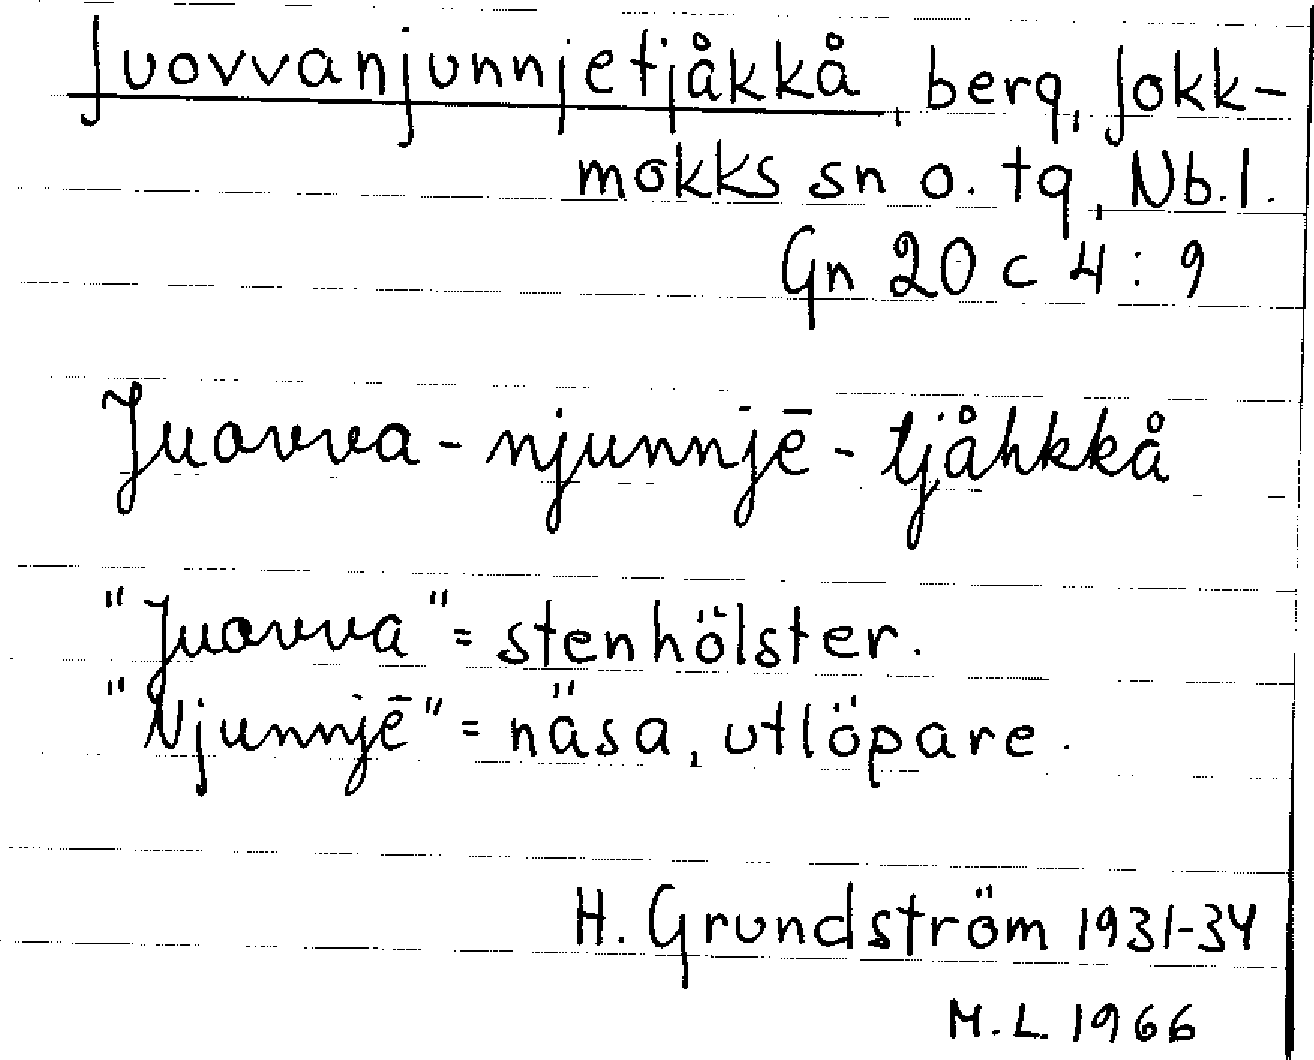 Juovvanjunnjetjåkkå, berg, Jokk-
mokks sn o. tg, Nb.l.
Gn 20 c 4:9
Juovva-njunnjē-tjåhkkå
"Juovva" = stenhölster.
"Njunnjē" = näsa, utlöpare.
H. Grundström 1931-34
M.L. 1966